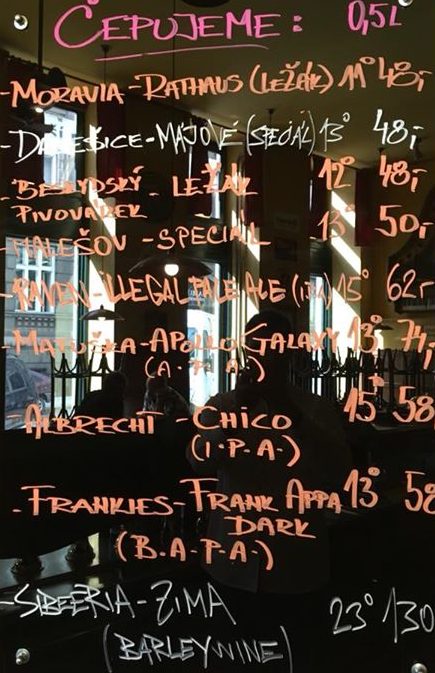 ČEPUJEME: 0,5L
-MORAVIA-RATHAUS (LEŽÁK) 11° 48,-
-DALEŠICE-MÁJOVÉ (SPECIÁL) 13° 48,-
-BESKYDSKÝ - LEŽÁK 12° 48,-
PIVOVÁREK
-MALEŠOV - SPECIÁL 13° 50,-
-RAVEN-ILLEGAL PALE ALE (IPA) 15° 62,-
-MATUŠKA-APOLLO GALAXY 13° 74,-
(A.P.A.)
-ALBRECHT - CHICO 15° 58
(I.P.A.)
-FRANKIES-FRANK APPA 13° 58
DARK
(B.A.P.A.)
-SIBEERIA-ZIMA 23° 130
(BARLEYWINE)